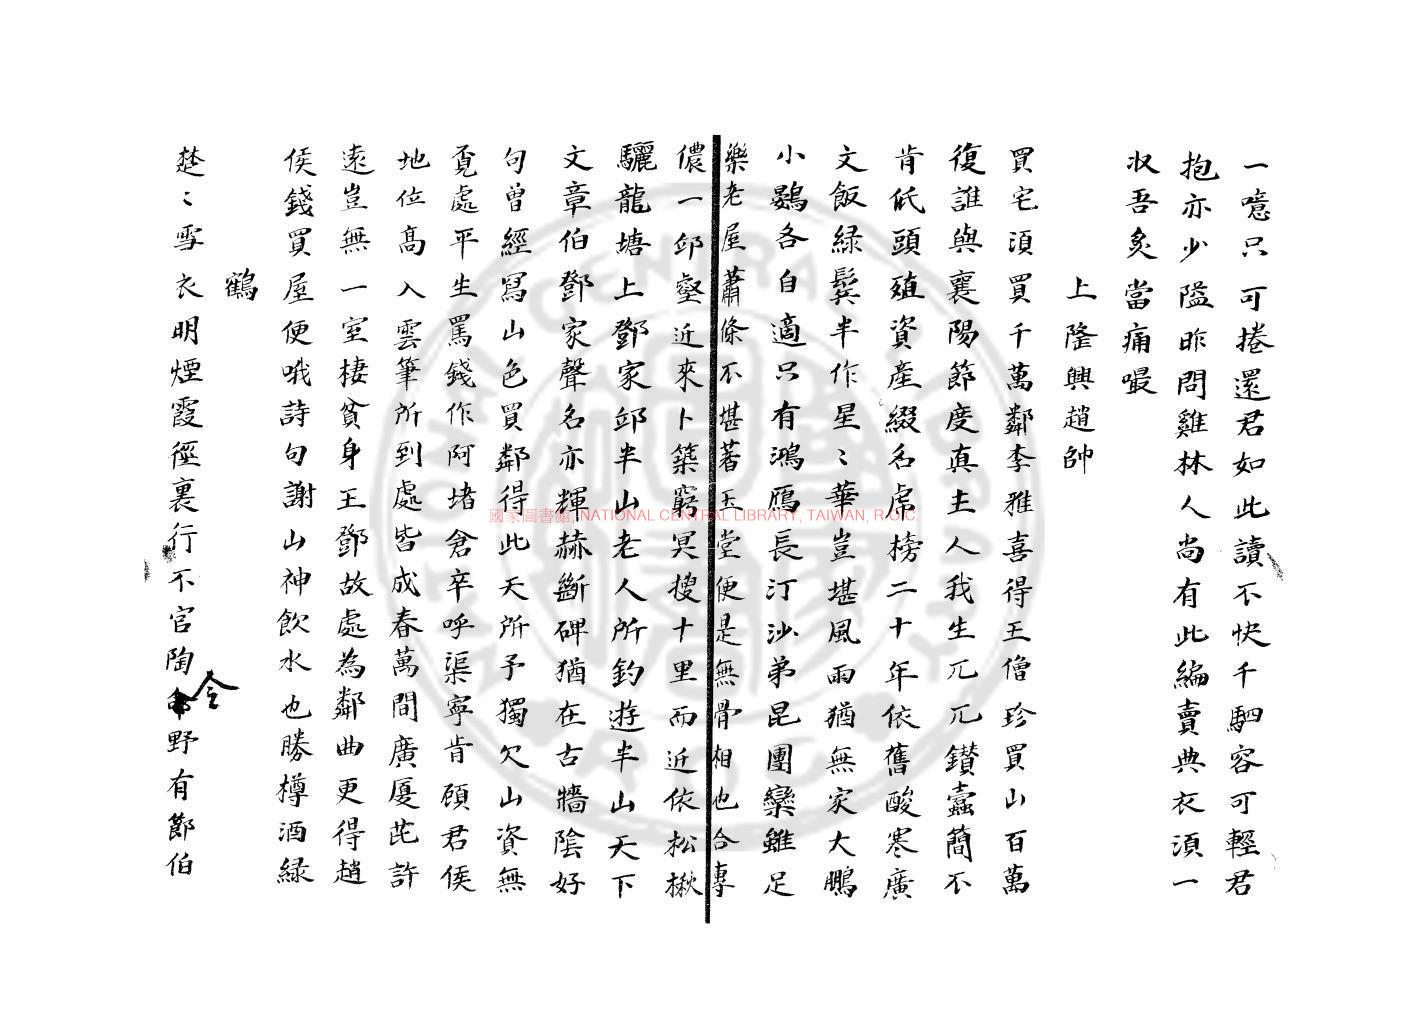 一噫只可捲還君如此讀不快千駟容可輕君
抱亦少隘昨問雞林人尚有此編賣典衣湏一
収吾炙當痛嘬
上隆興趙帥
買宅湏買千萬鄰李雅喜得王僧珍買山百萬
復誰與襄陽節度真主人我生兀兀鑚蠹簡不
肯低頭殖資産綴名虎榜二十年依舊酸寒廣
文飯緑鬓半作星〻華豈堪風雨猶無家大鵬
小鷃各自適只有鴻鴈長汀沙弟昆團欒雖足
樂老屋蕭條不堪著玉堂便是無骨相也合專
儂一邱壑近來卜築窮冥搜十里而近依松楸
驪龍塘上鄧家邱半山老人所釣遊半山天下
文章伯鄧家聲名亦輝赫斷碑猶在古牆陰好
句曾經冩山色買鄰得此天所予獨欠山資無
覔處平生罵錢作阿堵倉卒呼渠寧肯顧君侯
地位髙入雲筆所到處皆成春萬間廣厦芘許
遠豈無一室棲貧身王鄧故處為鄰曲更得趙
侯錢買屋便哦詩句謝山神飲水也勝樽酒緑
鶴
楚〻雪衣明煙霞徑裏行不官陶令野有鄒伯
國家圖書館, NATIONAL CENTRAL LIBRARY, TAIWAN, R.O.C.